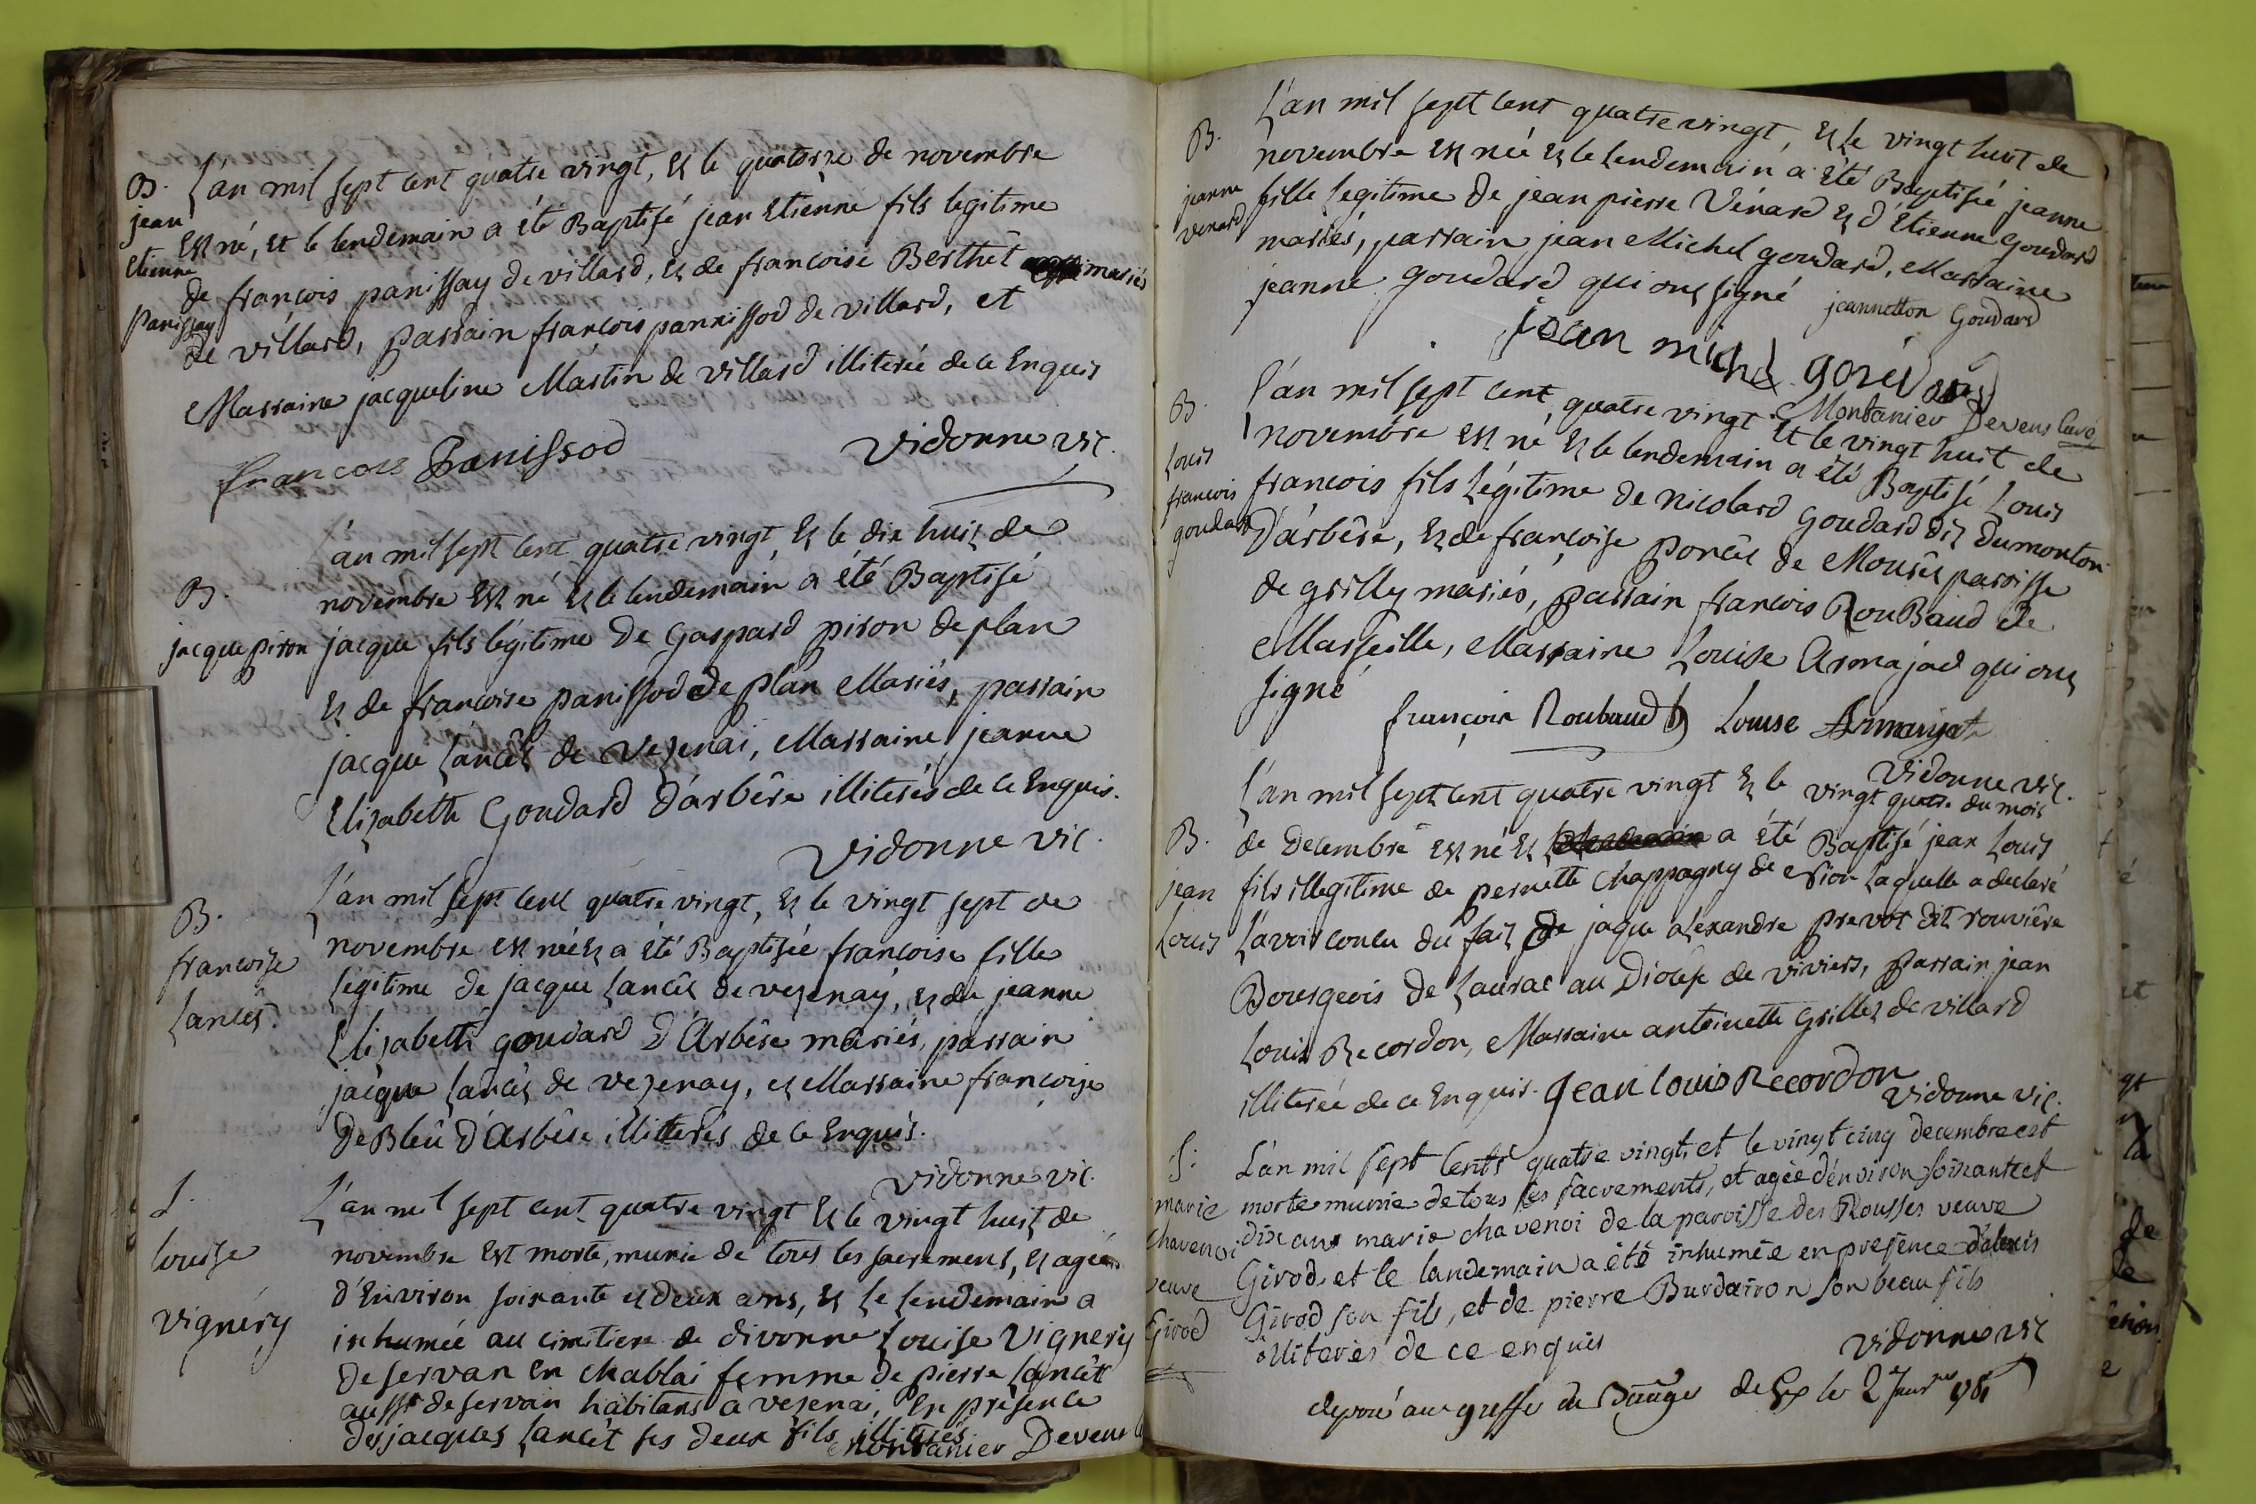 B. L'an mil sept cent quatre vingt, et le quatorze de novembre
jean
est né, et le lendemain a été Baptisé jean Etienne fils legitime
Etienne
de françois panissay de villard, et de francoise Berthet mariés
panissay
de villard, parrain françois pannissod de villard, et
Marraine jacqueline Martin de villard illiterée de ce Enquis
francois Panissod Vidonne vic.
L'an mil sept cent quatre vingt, et le dix huit de
B. novembre est né et le lendemain a été Baptisé
jacque piron jacque fils légitime de Gaspard piron de plan
et de francoise panissod de plan Mariés, parrain
jacque Lancêt de Vezenai, Marraine jeanne
Elizabeth Goudard d'arbêre illiterés de ce Enquis.
Vidonne vic.
L'an mil sept cent quatre vingt, et le vingt sept de
B.
francoise
Lancêt.
novembre est née et a été Baptisée françoise fille
légitime de jacque Lancêt de vezenay, et de jeanne
Elizabeth goudard d'Arbêre mariés, parrain
jacque Lancêt de vezenay, et Marraine françoise
DeBleû d'Arbêre illiterés de ce Enquis.
Vidonne vic.
S.
louise
vignéry
L'an mil sept cent quatre vingt et le vingt huit de
novembre est morte, munie de tous les sacremens, et agée
d'Environ soixante et deux ans, et le lendemain a
inhumée au cimetiere de divonne Louise Vignery
de servan en chablai femme de pierre Lancêt
aussi de servan habitans a vezenai, En présence
des jacques Lancêt ses deux fils illiterés
Montanier Devens
B.
jeanne
venard
L'an mil sept cent quatre vingt, et le vingt huit de
novembre est née et le lendemain a été Baptisée jeanne
fille legitime de jean pierre Vénard et d'Etienne Goudard
mariés, parrain jean Michel goudard, Marraine
jeanne goudard qui ont signé jeannetton Goudard
jean michel
Montanier Devens Curé
B.
Louis
francois
goudard
L'an mil sept cent quatre vingt et le vingt huit de
novembre est né et le lendemain a été Baptisé Louis
francois fils légitime de nicolard Goudard dit Dumonton
d'arbêre, et de françoise poncêt de Mourêt paroisse
de grilly mariés, parrain francois RouBaud de
Marseille, Marraine Louise Armajad qui ont
signé
françoir Roubaud Louise Armanjat
Vidonne vic.
L'an mil sept cent quatre vingt et le vingt quatre du mois
B.
jean
Louis
de decembre est né et a été Baptisé jean Louis
fils illegitime de pernette Chappagny de Sion laquelle a declaré
L'avoir concu du fait de jaque alexandre prevot dit rouviêre
Bourgeois de Laurac au Diocèse de viviers, parrain jean
Louis Recordon, Marraine antoinette Grillet de villard
illiterée de ce Enquis. Jean Louis Recordon
Vidonne vic.
S.
marie
chavenoi
veuve
Girod
L'an mil sept cents quatre vingt, et le vingt cinq decembre est
morte munie de tous les sacrements, et agée d'environ soixante et
dix ans marie chavenoi de la paroisse des Rousses veuve
Girod. et le landemain a été inhumée en presence d'alexis
Girod son fils, et de pierre Burdairon son beau fils
illiterés de ce enquis
Vidonne vic
deposé au greffe du Bailliage de Gex le 2 Janv. 1781